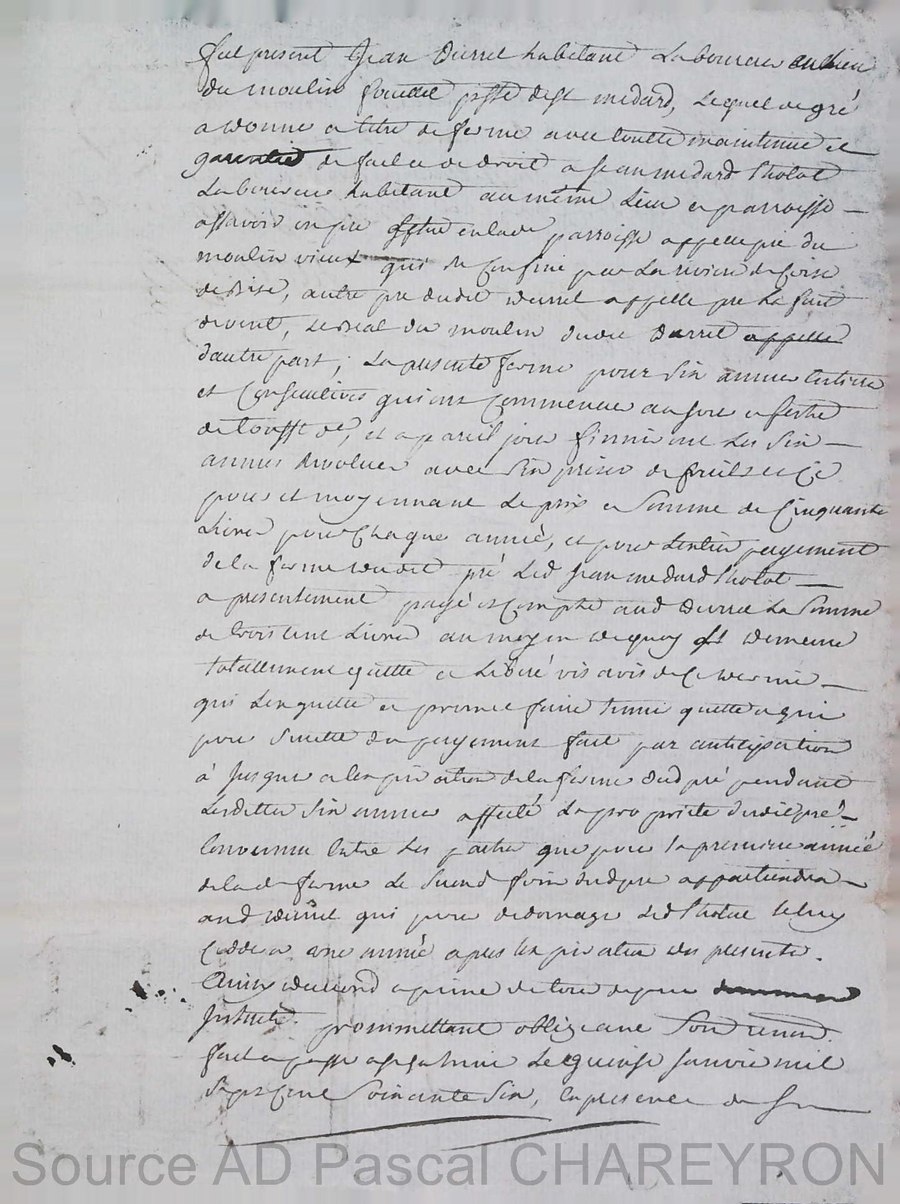 fut present Jean Durret habitant Laboureur au lieu
du moulin parroisse de st medard, Lequel de gré
a donne a titre de ferme avec toutte maintenue et
garantie de fait et de droit a Jean medard Tholot
Laboureur habitant au même Lieu et parroisse –
assavoir un pré scitué en lad. parroisse appellé pré du
moulin vieux qui se Confine par La riviere de Coise
de Bise, autre pré dudit Durret appelle pré La font
de vent, Le Beal du moulin dudit Durret appelle
d'autre part, La presente ferme pour Six années Entieres
et Consecutives qui ont Commencé au jour et feste
de touss.t d.r, et a pareil jour finniront Les Six –
années Revolues avec Six prises de fruits et Ce
pour et moyennant Le prix et Somme de Cinquante
Livres pour Chaque année, et pour L'entier payement
de la ferme dudit pré Led. Jean medard Tholot –
a presentement payé et Compté aud. Durret La Somme
de trois Cent Livres au moyen de quoy il demeure
totallement quitte et Liberé vis avis de Ce dernier –
qui L'en quitte et promet faire tenir quitte a qui
pour Surette du payement fait par anticipation
a Jusque a L'expiration de la ferme dud. pré pendant
Lesdittes Six années affecté La proprieté dudit pré –
Convenu Entre Les parties que pour la premiere année
de lad. ferme Le Second foin dud. pré appartiendra –
aud. Durret qui pour dedomage Led. Tholot Luy
Cedera une année apres L'expiration des presentes.
Ainsy d'accord a peine de tous depens dommages
Interets. prommettant obligeant Soum. renon.
fait et passé a St Galmier Le quinze Janvier mil
Sept Cent Soixante Six, En presence de Sr –
Source AD Pascal CHAREYRON